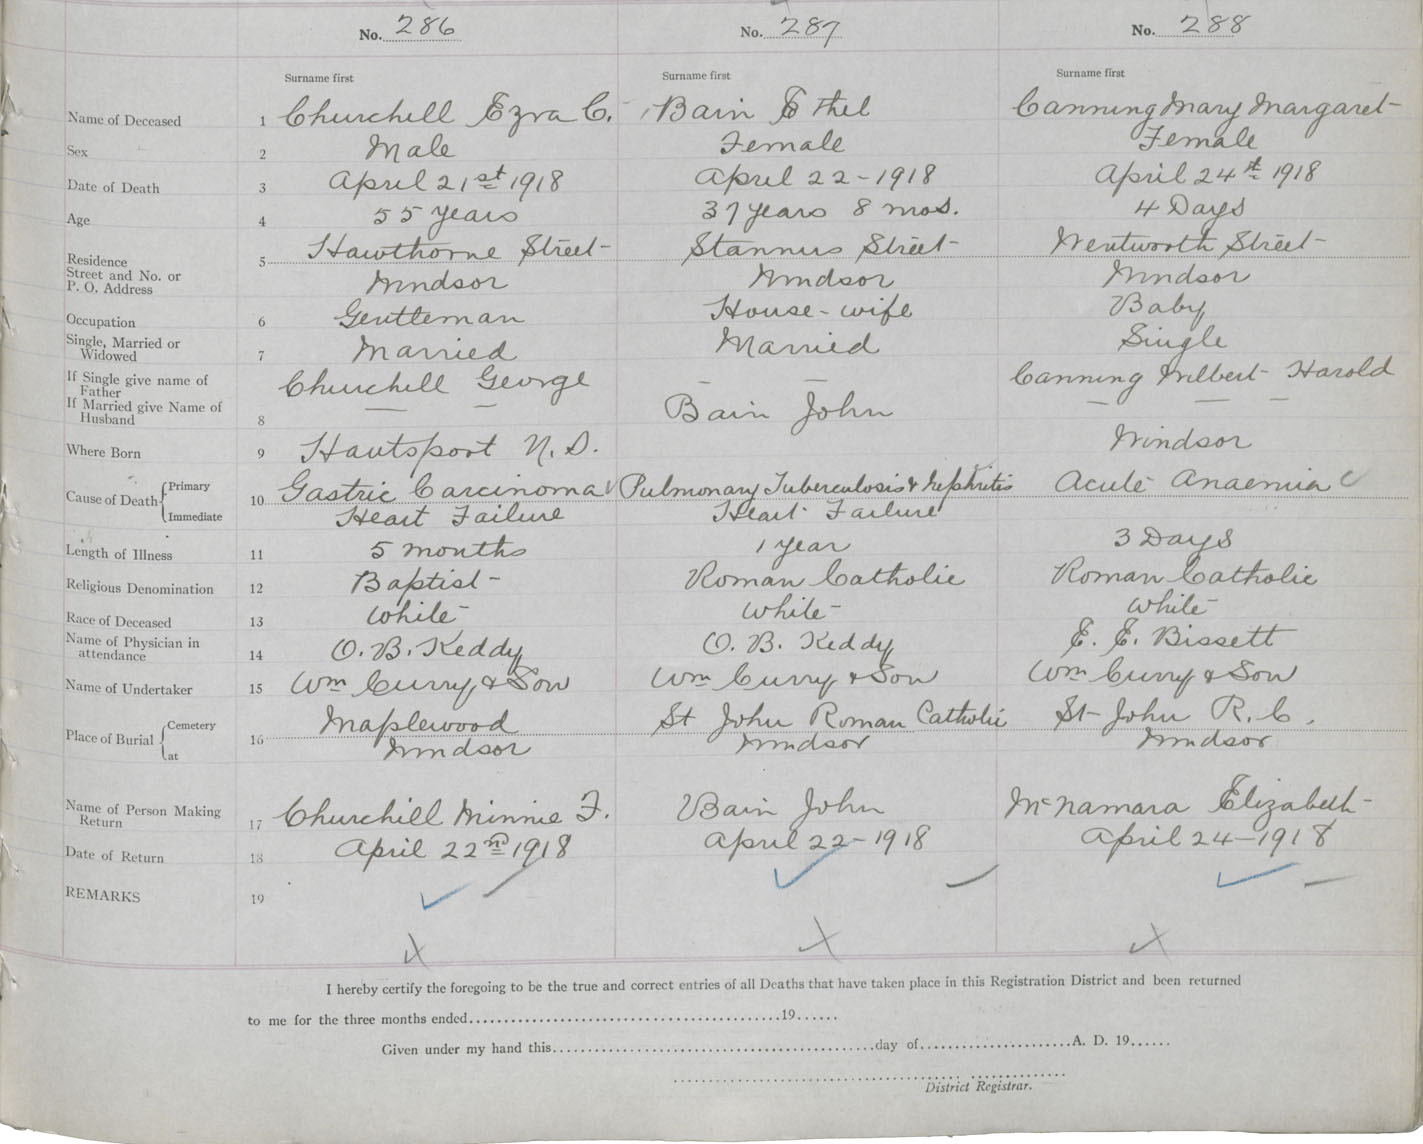 No. 286 No. 287 No. 288
Surname first Surname first Surname first
Name of Deceased 1 Churchill Ezra C. Bain Ethel Canning Mary Margaret
Sex 2 Male Female Female
Date of Death 3 April 21st 1918 April 22-1918 April 24th 1918
Age 4 55 Years 37 years 8 mos. 4 Days
Residence 5 Hawthorne Street Stannus Street Wentworth Street
Street and No. or
P. O. Address Windsor Windsor Windsor
Occupation 6 Gentleman House-wife Baby
Single, Married or
Widowed 7 Married Married Single
If Single give name of
Father Churchill George – – Canning Wilbert Harold
If Married give Name of
Husband 8 – – Bain John – – –
Where Born 9 Hantsport N.S. Windsor
Cause of Death { Primary 10 Gastric Carcinoma Pulmonary Tuberculosis & Nephritis Acute Anaemia C
Immediate Heart Failure Heart Failure
Length of Illness 11 5 months 1 year 3 Days
Religious Denomination 12 Baptist Roman Catholic Roman Catholic
Race of Deceased 13 White White White
Name of Physician in
attendance 14 O. B. Keddy O. B. Keddy E. E. Bissett
Name of Undertaker 15 Wm Curry & Son Wm Curry & Son Wm Curry & Son
Place of Burial { Cemetery 16 Maplewood St John Roman Catholic St John R.C.
at Windsor Windsor Windsor
Name of Person Making
Return 17 Churchill Minnie F. Bain John McNamara Elizabeth
Date of Return 18 April 22nd 1918 April 22-1918 April 24-1918
REMARKS 19
I hereby certify the foregoing to be the true and correct entries of all Deaths that have taken place in this Registration District and been returned
to me for the three months ended..........19......
Given under my hand this..........day of..........A. D. 19......
District Registrar.